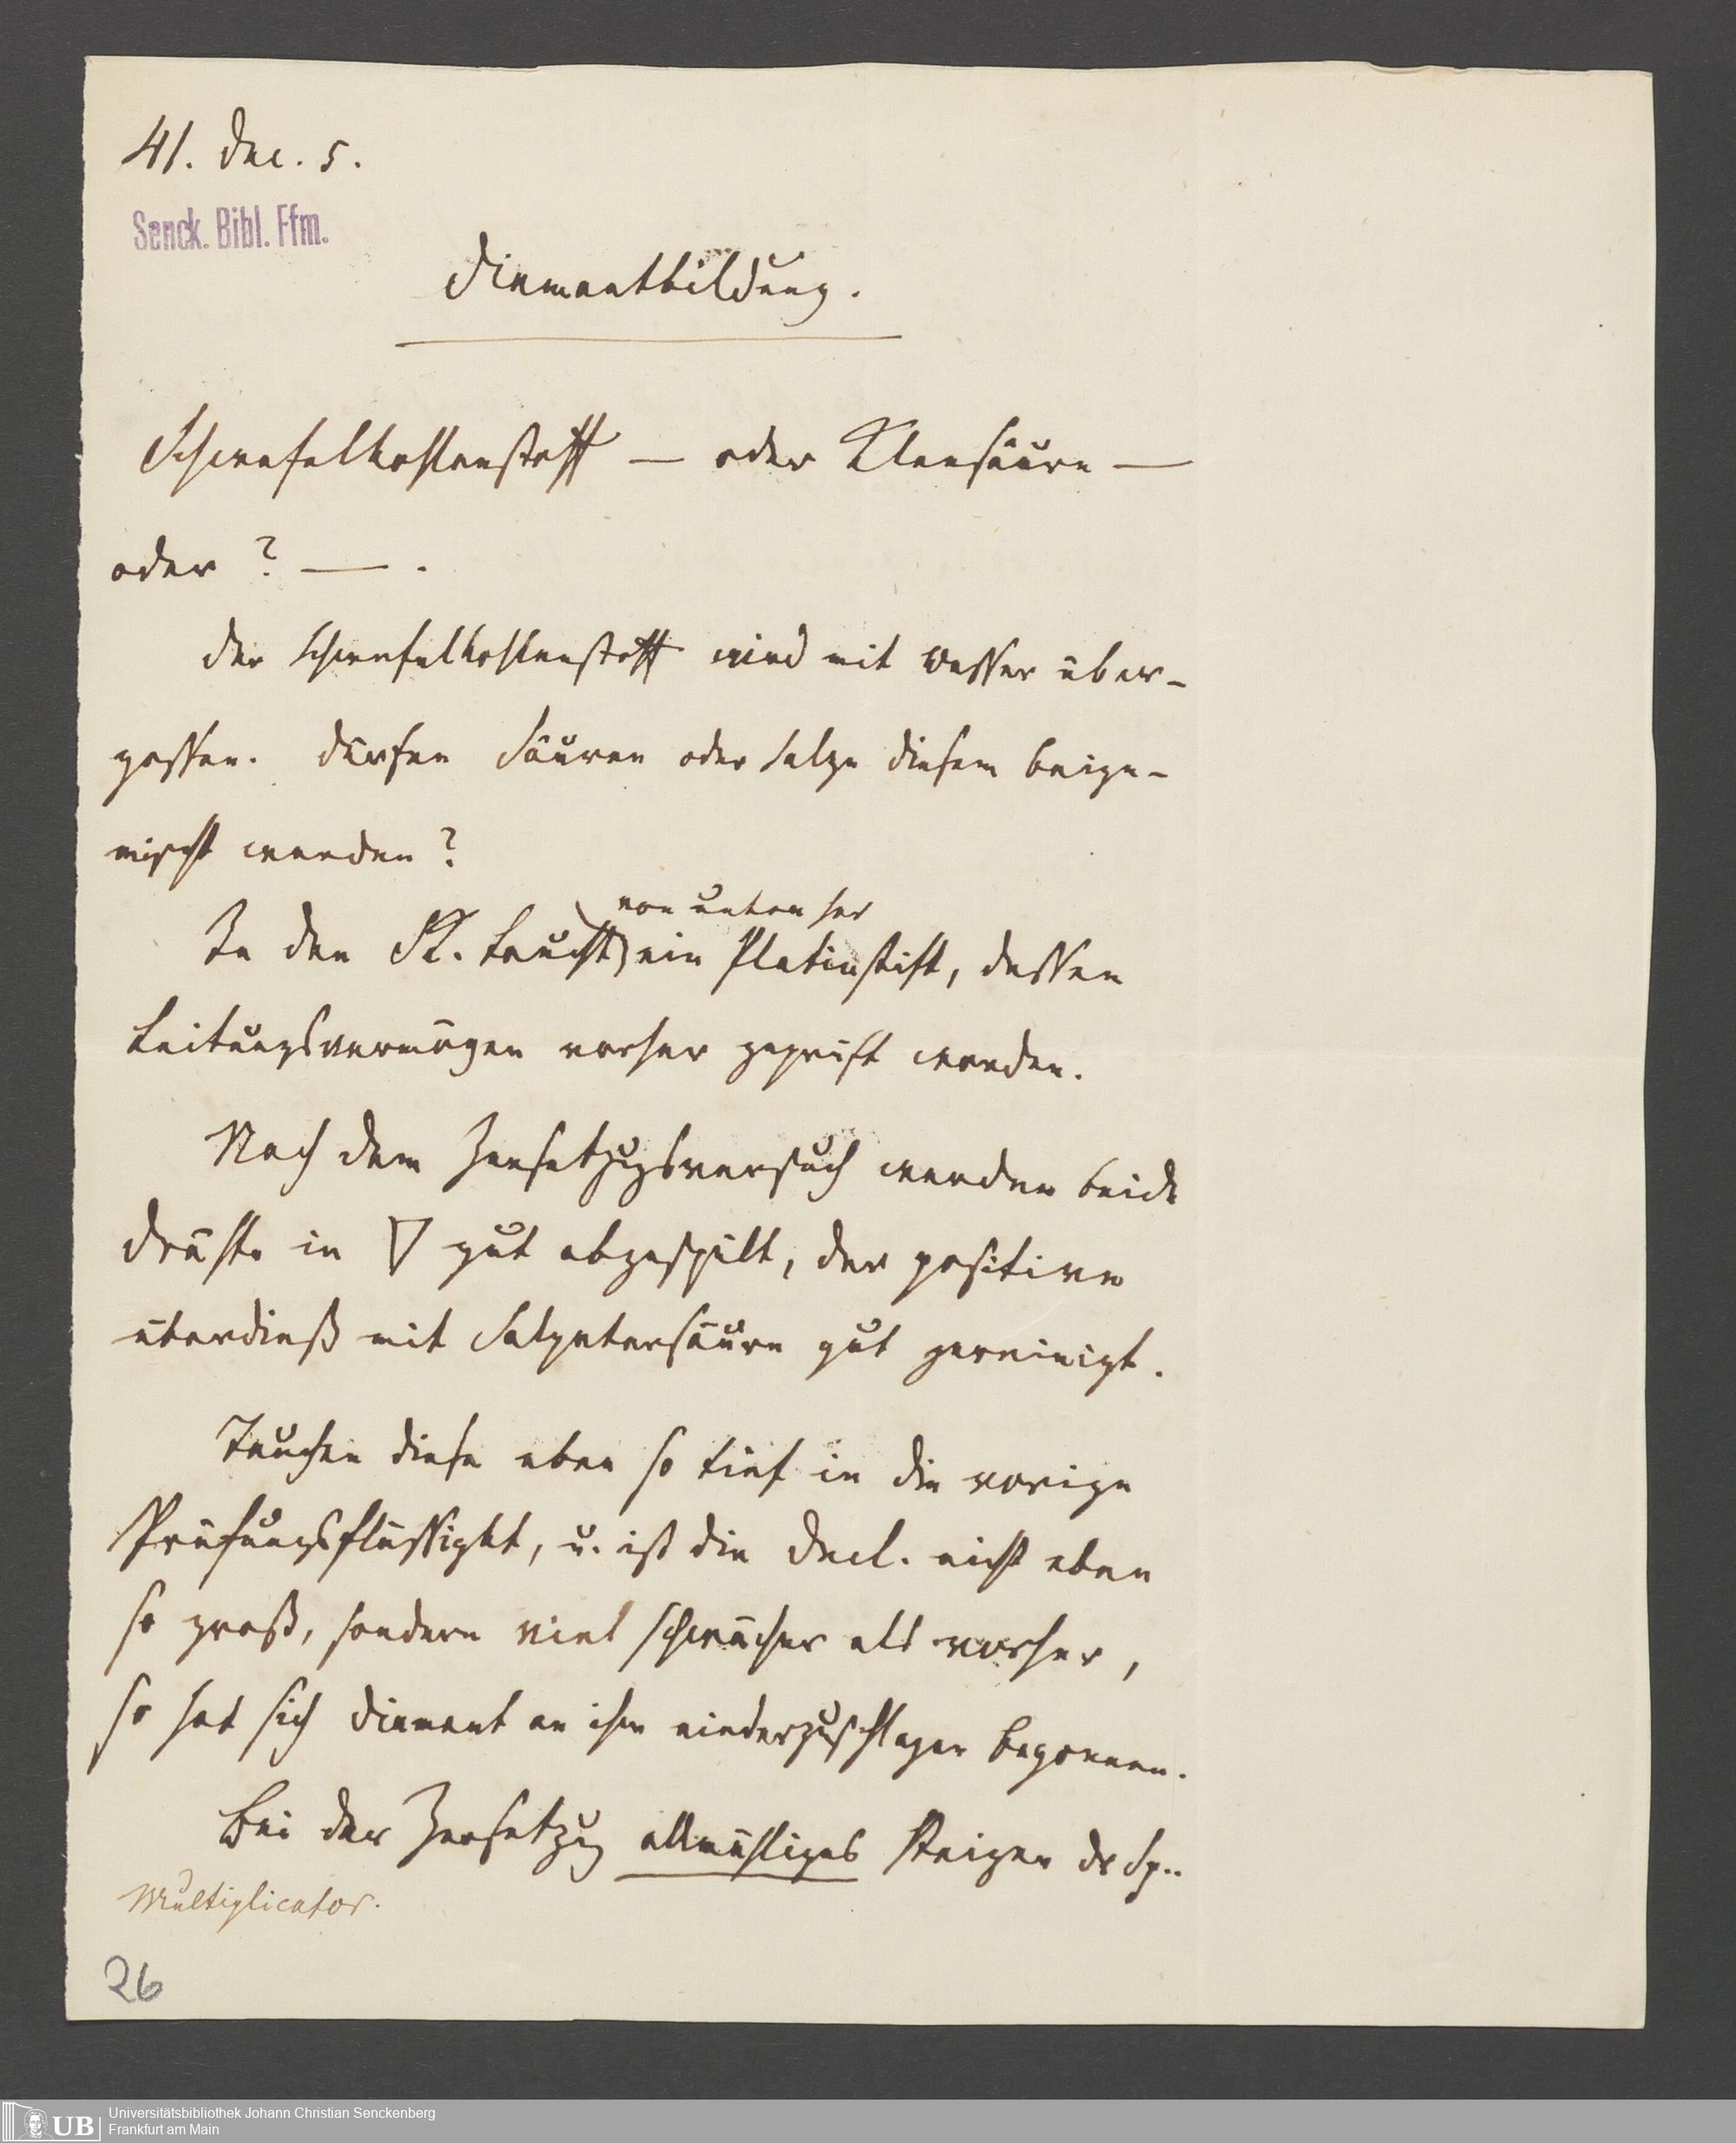 41. Dec. 5.
Senck. Bibl. Ffm.
Diamantbildung.
Schwefelkohlenstoff — oder Kleesäure —
oder ? — .
Der Schwefelkohlenstoff wird mit Wasser über-
gossen. Dürfen Säuren oder Salze diesem beige-
mischt werden?
von unten her
In den Sk. taucht ein Platinstift, dessen
Leitungsvermögen vorher geprüft worden.
Nach dem Zersetzungsversuch werden beide
Drähte in ▽ gut abgespült, der positive
überdieß mit Salpetersäure gut gereinigt.
Tauchen diese eben so tief in die vorige
Prüfungsflüssigkt, u. ist die Decl. nicht eben
so groß, sondern viel schwächer als vorher,
so hat sich Diamant an ihm niederzuschlagen begonnen.
Bei der Zersetzung allmähliges Steigen der Sp..
Multiplicator.
26
UB
Universitätsbibliothek Johann Christian Senckenberg
Frankfurt am Main